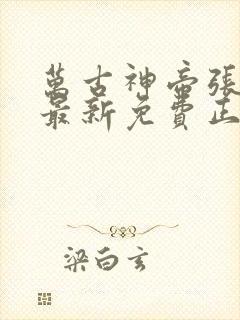 萬古神帝張
最新免費正
梁白玄